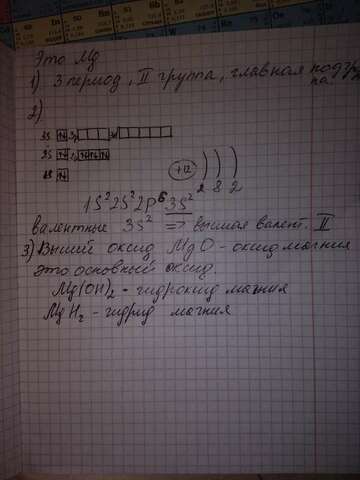 Это Mg
1) 3 период, II группа, главная подгру
ппа.
2)
3S ↑↓ 3p 3d
2S ↑↓ 2p ↑↓ ↑↓ ↑↓
1S ↑↓
+12 ) ) )
2 8 2
1S² 2S² 2P⁶ 3S²
валентные 3S² => высшая валент. II
3) Высший оксид MgO - оксид магния
это основный оксид.
Mg(OH)₂ - гидроксид магния
MgH₂ - гидрид магния